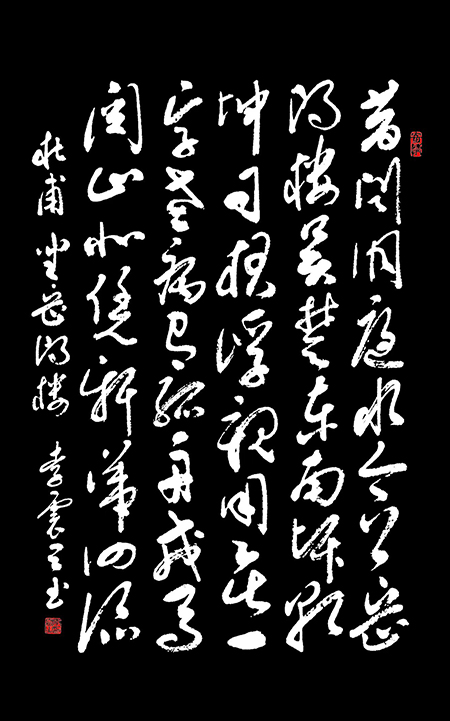 昔闻洞庭水今上岳
阳楼吴楚东南坼乾
坤日夜浮亲朋无一
字老病有孤舟戎马
关山北凭轩涕泗流
杜甫登岳阳楼 李震书